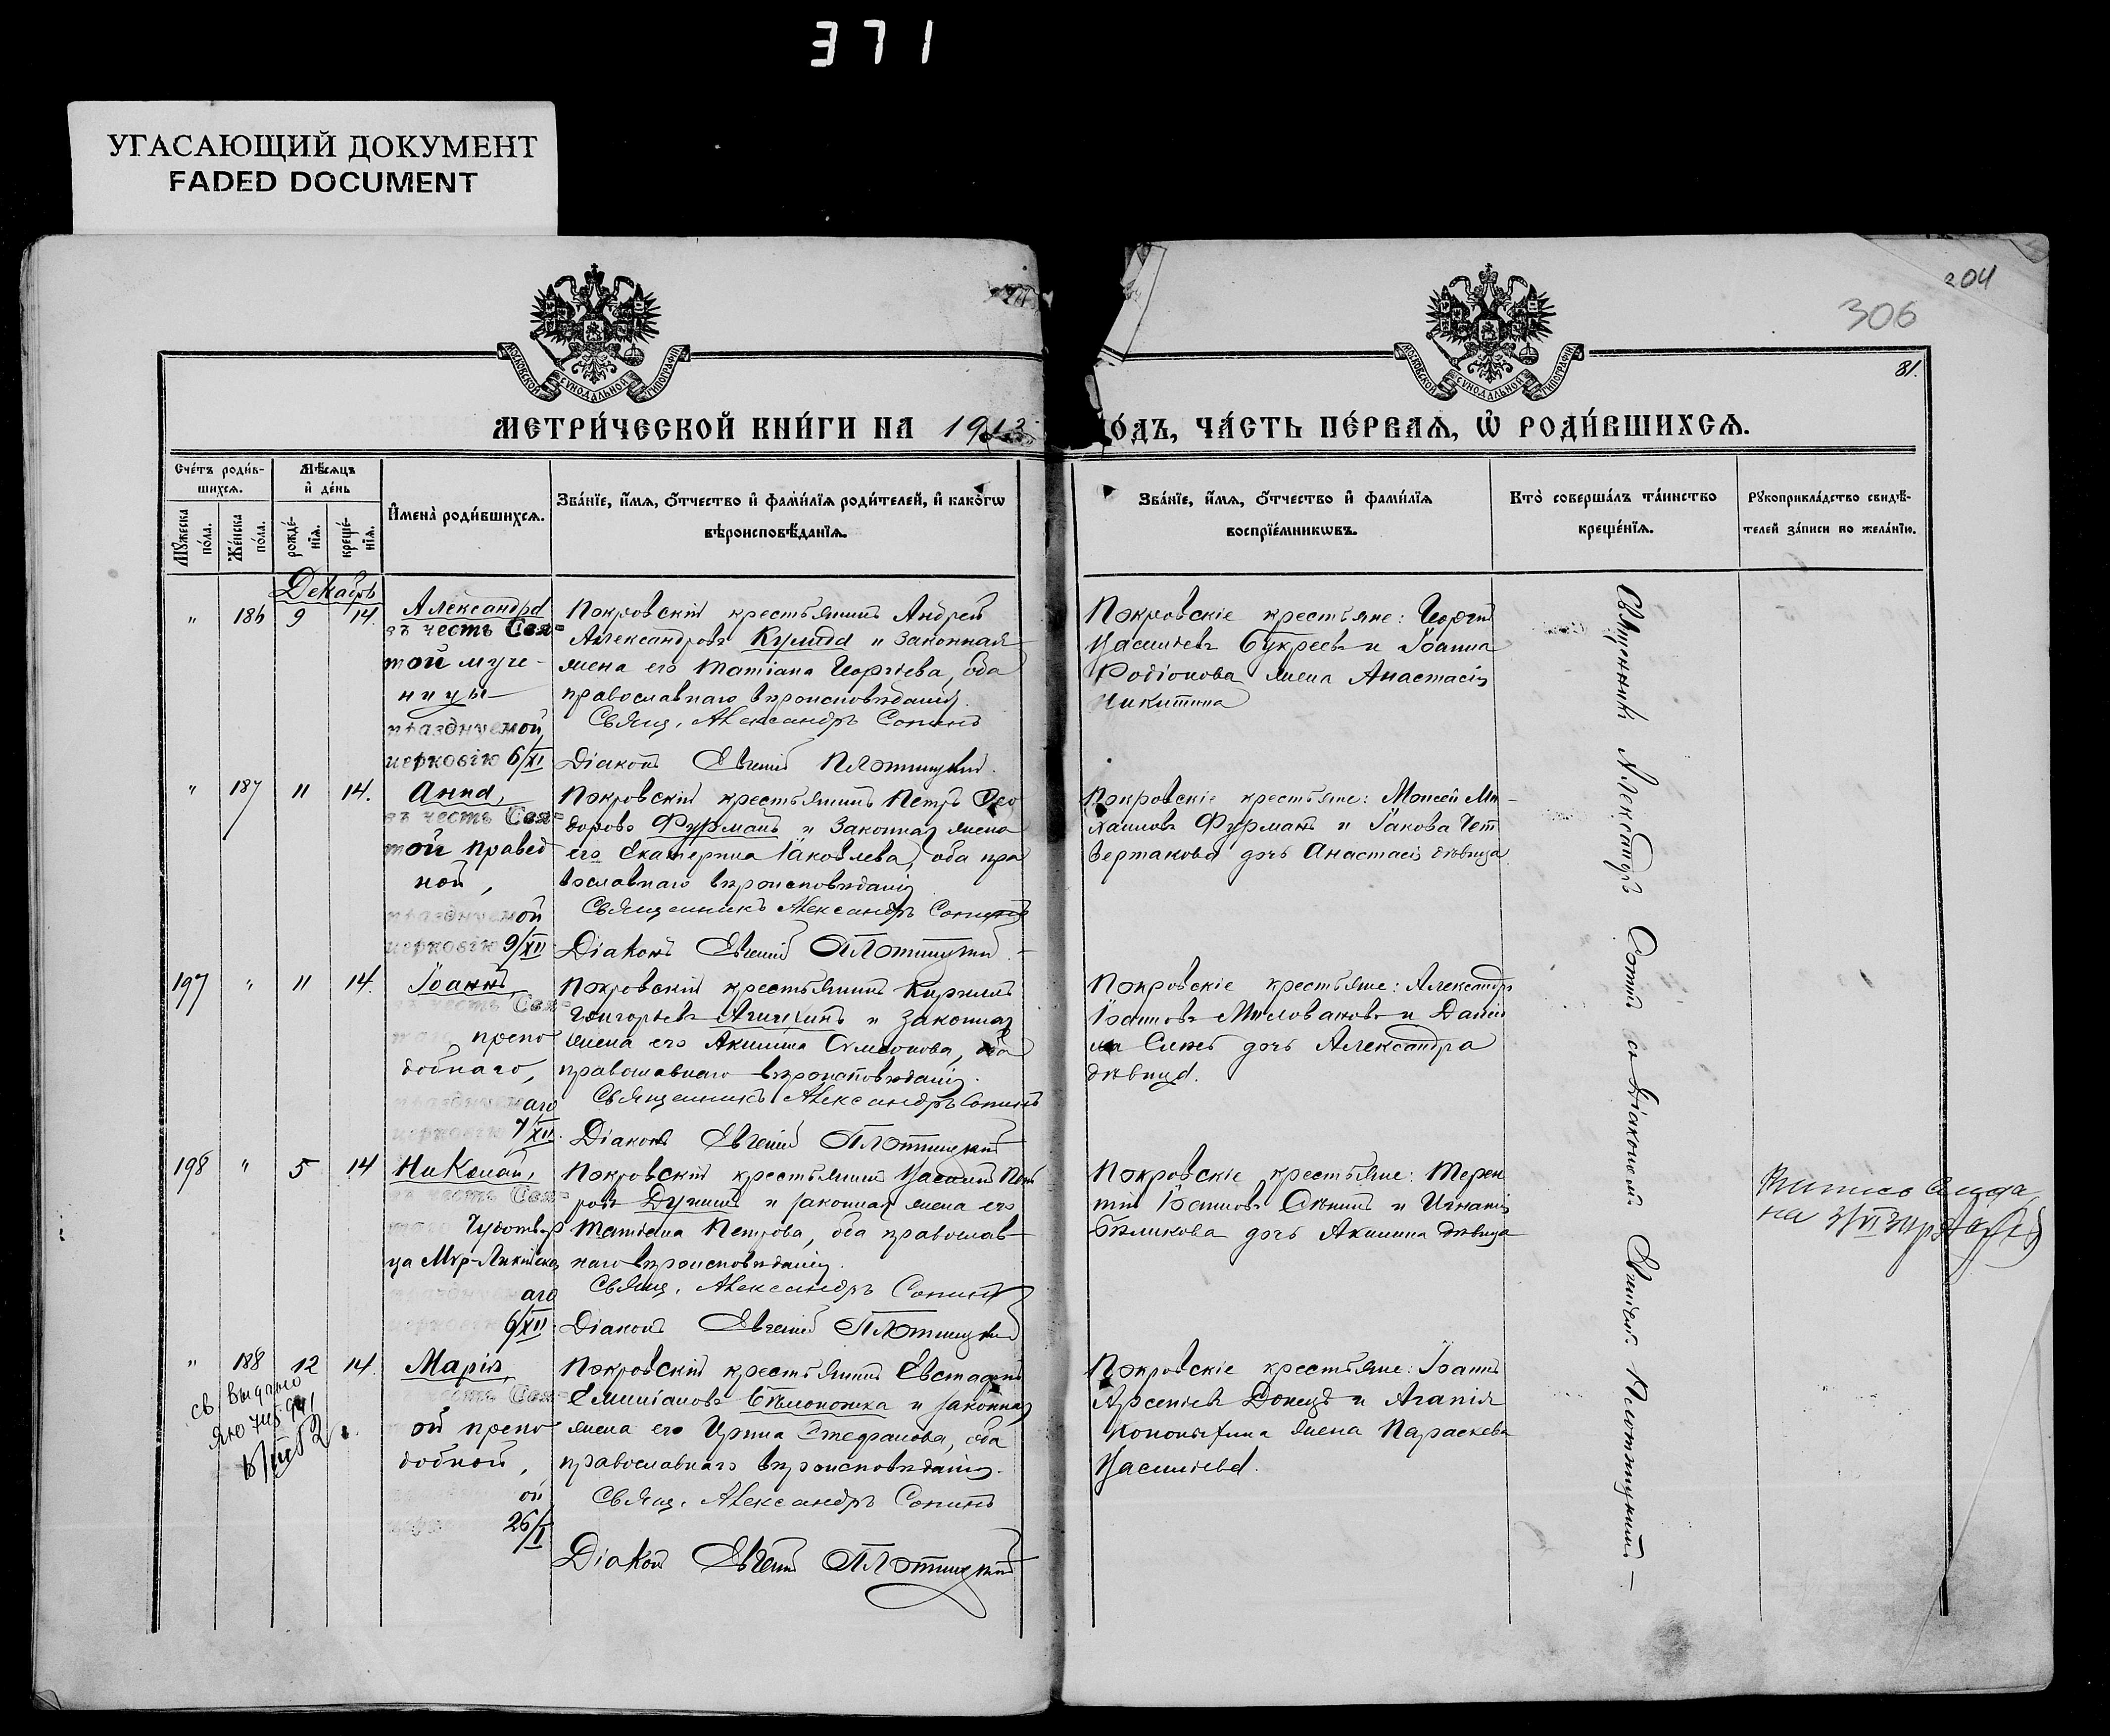 371
УГАСАЮЩИЙ ДОКУМЕНТ
FADED DOCUMENT
204
306
81.
МОСКОВСКОЙ СѴНОДАЛЬНОЙ ТИПОГРАФІИ
МОСКОВСКОЙ СѴНОДАЛЬНОЙ ТИПОГРАФІИ
МЕТРИ́ЧЕСКОЙ КНИ́ГИ НА 1913
ОДЪ, ЧА́СТЬ ПЕ́РВАЯ, Ѿ РОДИ́ВШИХСЯ.
Сче́тъ роди́в-
шихся.
Мѣ́сяцъ
и҆ де́нь
Мꙋ́жеска по́ла.
Же́нска по́ла.
рожде́-
нїя.
креще́-
нїя.
И҆мена̀ роди́вшихся.
Зва́нїе, и҆́мя, ѻ҆́тчество и҆ фами́лїя роди́телей, и҆ како́гѡ
вѣроисповѣ́данїя.
Зва́нїе, и҆́мя, ѻ҆́тчество и҆ фами́лїя
воспрїе́мникѡвъ.
Кто̀ соверша́лъ та́инство
креще́нїя.
Рꙋкоприкла́дство свидѣ́-
телей за́писи по жела́нїю.
Декабрь
" 186 9 14.
Александра
въ честь Свя=
той муче-
ницы
празднуемой
церковію 6/XI
Покровскій крестьянинъ Андрей
Александровъ и законная
жена его Татіана Георгіева, оба
православнаго вѣроисповѣданія.
Свящ. Александръ Сопинъ
Діаконъ Евгеній Плотницкій.
Покровскіе крестьяне: Георгій
Васильевъ Букреевъ и Іоанна
Родіонова жена Анастасія
Никитина
" 187 11 14.
Анна,
въ честь Свя=
той правед
ной,
празднуемой
церковію 9/XII
Покровскій крестьянинъ Петръ Ѳео
доровъ Фурманъ и законная жена
его Екатерина Іаковлева, оба пра
вославнаго вѣроисповѣданія
Священникъ Александръ Сопинъ
Діаконъ Евгеній Плотницкій.
Покровскіе крестьяне: Моисей Ми-
хаиловъ Фурманъ и Іакова Чет
вертакова дочь Анастасія дѣвица
197 " 11 14.
Іоаннъ,
въ честь Свя=
таго препо
добнаго,
празднуемаго
церковію 7/XII.
Покровскій крестьянинъ Кириллъ
Григорьевъ и законная
жена его Акилина Симеонова, оба
православнаго вѣроисповѣданія.
Священникъ Александръ Сопинъ
Діаконъ Евгеній Плотницкій
Покровскіе крестьяне: Александръ
Іоанновъ Миловановъ и Даніи
ла дочь Александра
дѣвица.
198 " 5 14
Николай,
въ честь Свя=
таго Чудотвор
ца Мѵр-Ликійска
аго
6/XII.
Покровскій крестьянинъ Василій Пет
ровъ и законная жена его
Петрова, оба православ-
наго вѣроисповѣданія.
Свящ. Александръ Сопинъ
Діаконъ Евгеній Плотницкій
Покровскіе крестьяне: Терен
тій Іоанновъ и Игнатія
Бѣликова дочь Акилина дѣвица
" 188 12 14.
св. выдано
Марія,
честь Свя=
ой препо
добной,
ой
26/I
Покровскій крестьянинъ Евстафій
Емиліановъ Бѣлоножка и законная
жена его Ирина Стефанова, оба
православнаго вѣроисповѣданія.
Свящ. Александръ Сопинъ
Діаконъ Евгеній Плотницкій
Покровскіе крестьяне: Іоаннъ
Арсеніевъ Донецъ и Агапія
жена Параскева
Васильева.
Священникъ Александръ Сопинъ съ Діакономъ Евгеніемъ Плотницкимъ.